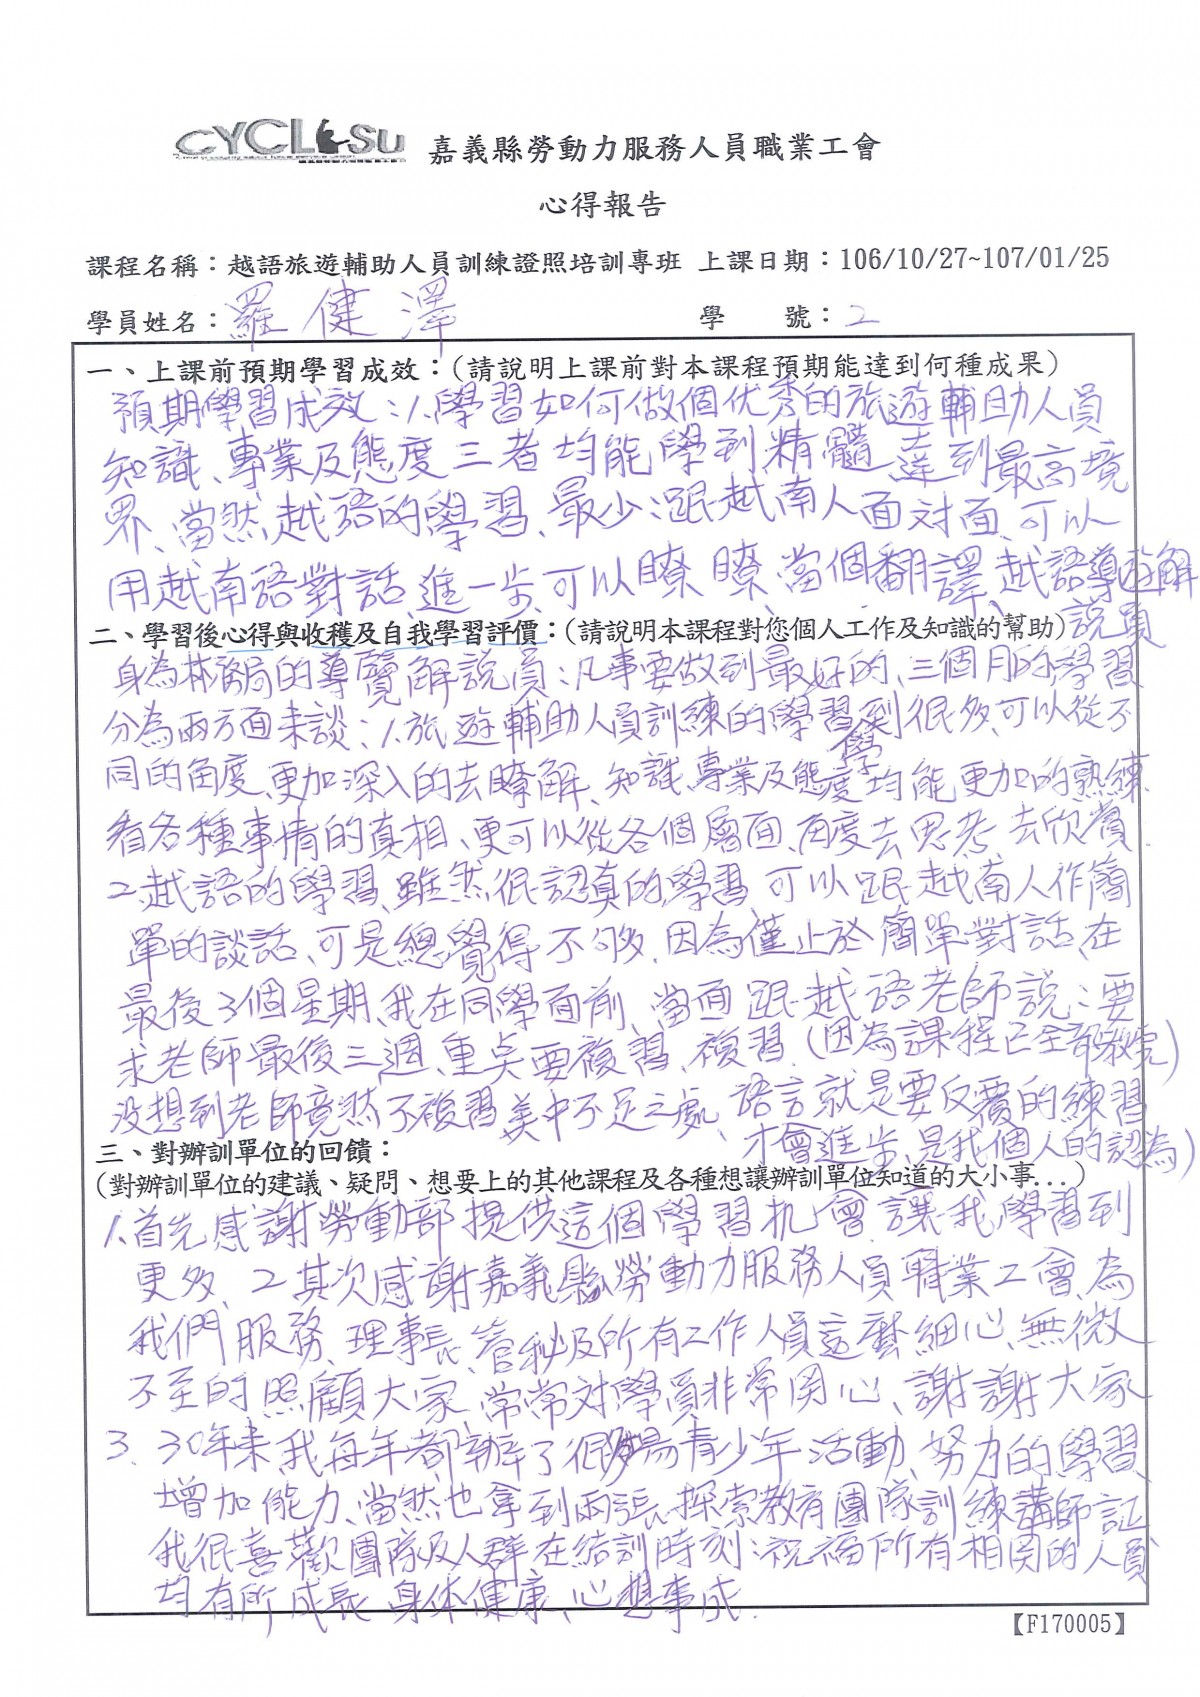 CYCLSU 嘉義縣勞動力服務人員職業工會
心得報告
課程名稱：越語旅遊輔助人員訓練證照培訓專班 上課日期：106/10/27~107/01/25
學員姓名：羅健澤 學　號：2
一、上課前預期學習成效：(請說明上課前對本課程預期能達到何種成果)
預期學習成效：1.學習如何做個優秀的旅遊輔助人員
知識、專業及態度三者均能學到精髓、達到最高境
界、當然越語的學習、最少：跟越南人面對面、可以
用越南語對話、進一步、可以瞭瞭、當個翻譯、越語導遊解
說員
二、學習後心得與收穫及自我學習評價：(請說明本課程對您個人工作及知識的幫助)
身為林務局的導覽解說員：凡事要做到最好的、三個月的學習
分為兩方面來談：1.旅遊輔助人員訓練的學習學到很多、可以從不
同的角度、更加深入的去瞭解、知識、專業及態度均能更加的熟練
看各種事情的真相、更可以從各個層面、角度去思考、去欣賞.
2.越語的學習、雖然很認真的學習、可以跟越南人作簡
單的談話、可是總覺得不夠、因為僅止於簡單對話、在
最後3個星期、我在同學面前、當面跟越語老師說：要
求老師最後三週、重點要複習、複習.(因為課程已全部教完)
沒想到老師竟然不複習美中不足之處、語言就是要反覆的練習
才會進步、是我個人的認為)
三、對辦訓單位的回饋：
(對辦訓單位的建議、疑問、想要上的其他課程及各種想讓辦訓單位知道的大小事...)
1.首先感謝勞動部提供這個學習机會、讓我學習到
更多、2.其次感謝嘉義縣勞動力服務人員職業工會、為
我們服務、理事長、管秘及所有工作人員這麼細心、無微
不至的照顧大家、常常對學員非常用心、謝謝大家
3. 30年來、我每年都辦了很多場青少年活動、努力的學習
增加能力、當然也拿到兩張探索教育團隊訓練講師証
我很喜歡團隊及人群在結訓時刻：祝福所有相關的人員
均有所成長、身体健康、心想事成.
【F170005】